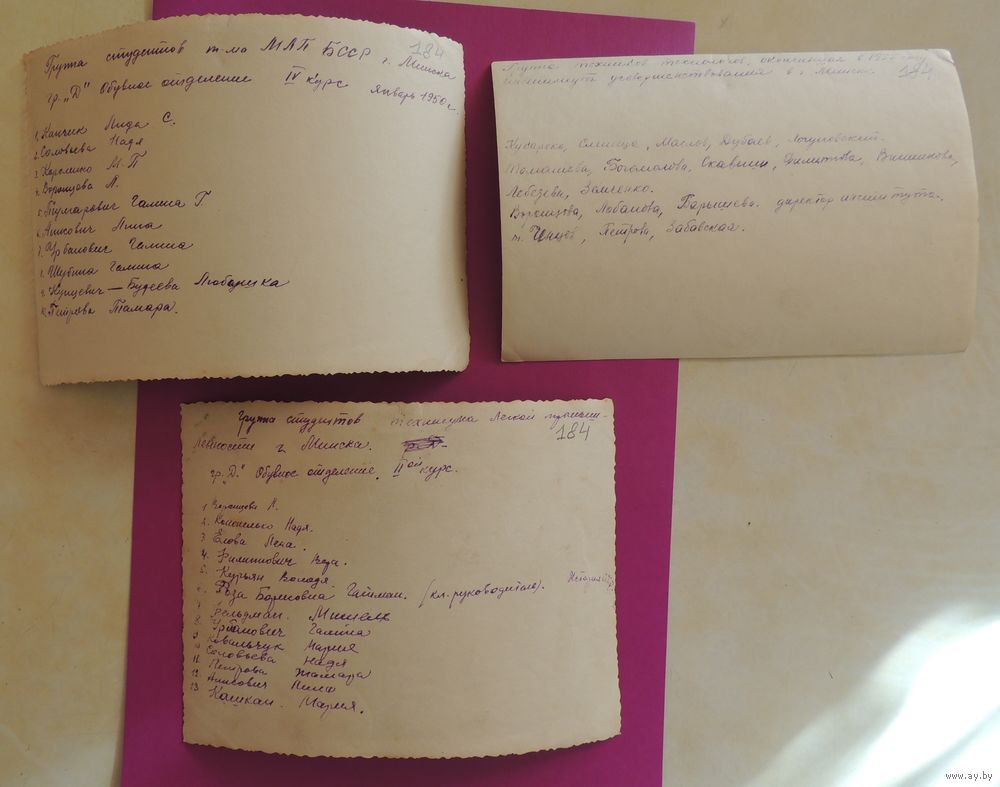 Группа студентов т-ма МЛП БССР г. Минска
184
гр. „Д" Обувное отделение IV курс Январь 1950 г.
1. Лида С.
2. Соловьева Надя
3. Короленко М. П
4. Воронцова Л.
5. Тумарович Галина Г.
6. Анисович Лина
7. Урбанович Галина
8. Шубина Галина
9. Куцевич — Будеева Любашка
10. Петрова Тамара.
Группа техников технологов, окончивших в
института усовершенствования в г. 184
Кусарева, Маслов, Дубаев,
Богомолова, Вишнякова,
Лебезева, Земченко.
Воронцова, Лобанова, Барышева. директор института.
т. Петрова, Забавская.
Группа студентов техникума Легкой промыш-
ленности г. Минска.
184
гр. „Д" Обувное отделение. II ой курс.
1. Воронцова Л.
2. Надя.
3. Елова Лена.
4. Филиппович Вера.
5. Курьян Володя.
6. Роза Борисовна Гайтман. (кл. руководитель). История
7. Фельдман.
8. Урбанович Галина
9. Ковальчук Мария
10. Соловьева Надя
11. Петрова Тамара
12. Анисович Лина
13. Кашкан. Мария.
www.ay.by